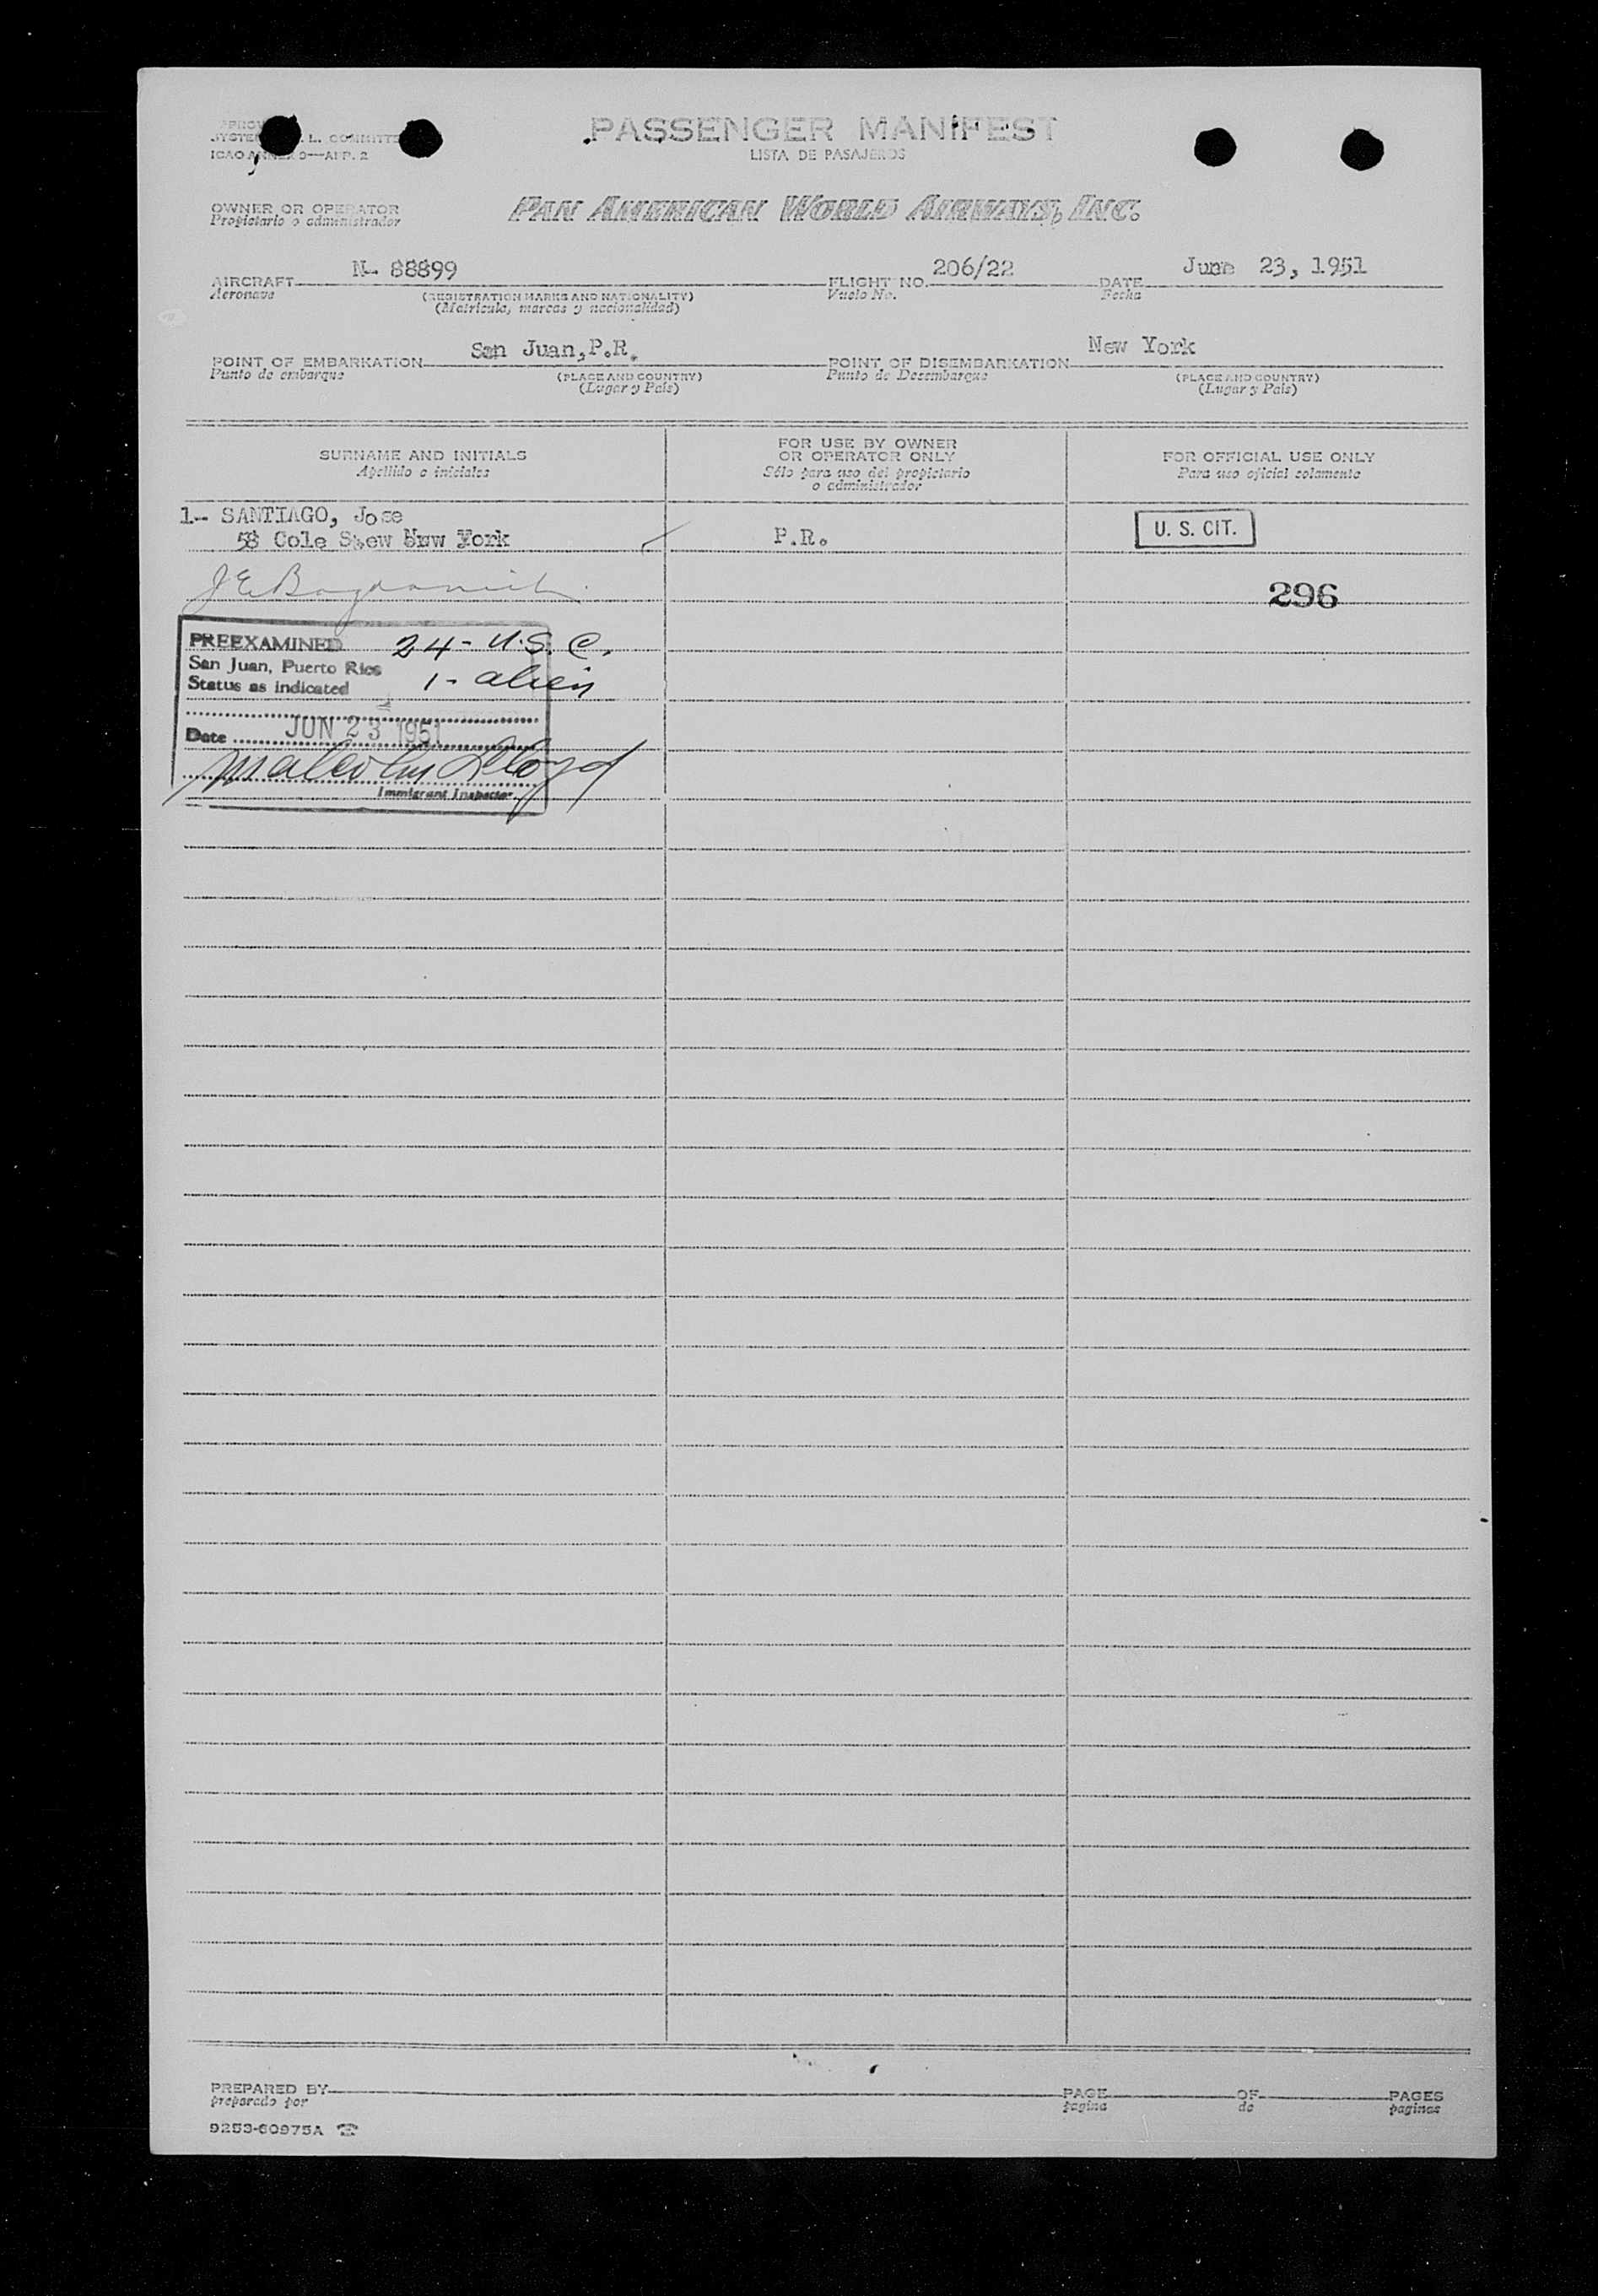 PASSENGER MANIFEST
LISTA DE PASAJEROS
L. COMMITTE
ICAO ANNEX 9—APP. 2
OWNER OR OPERATOR
Propietario o administrador
PAN AMERICAN WORLD AIRWAYS, INC.
AIRCRAFT N- 88899 FLIGHT NO. 206/22 DATE June 23, 1951
Aeronave (REGISTRATION MARKS AND NATIONALITY) Vuelo No. Fecha
(Matricula, marcas y nacionalidad)
POINT OF EMBARKATION San Juan,P.R. POINT OF DISEMBARKATION New York
Punto de embarque (PLACE AND COUNTRY) Punto de Desembarque (PLACE AND COUNTRY)
(Lugar y Pais) (Lugar y Pais)
SURNAME AND INITIALS
Apellido e iniciales
FOR USE BY OWNER
OR OPERATOR ONLY
Sólo para uso del propietario
o administrador
FOR OFFICIAL USE ONLY
Para uso oficial solamente
1- SANTIAGO, Jose
Cole York P.R. U. S. CIT.
296
PREEXAMINED 24- U.S.C.
San Juan, Puerto Rico
Status as indicated 1- alien
Date JUN 23 1951
Malcolm Lloyd
Immigrant Inspector
PREPARED BY PAGE OF PAGES
preparado por pagina de paginas
9253-60975A